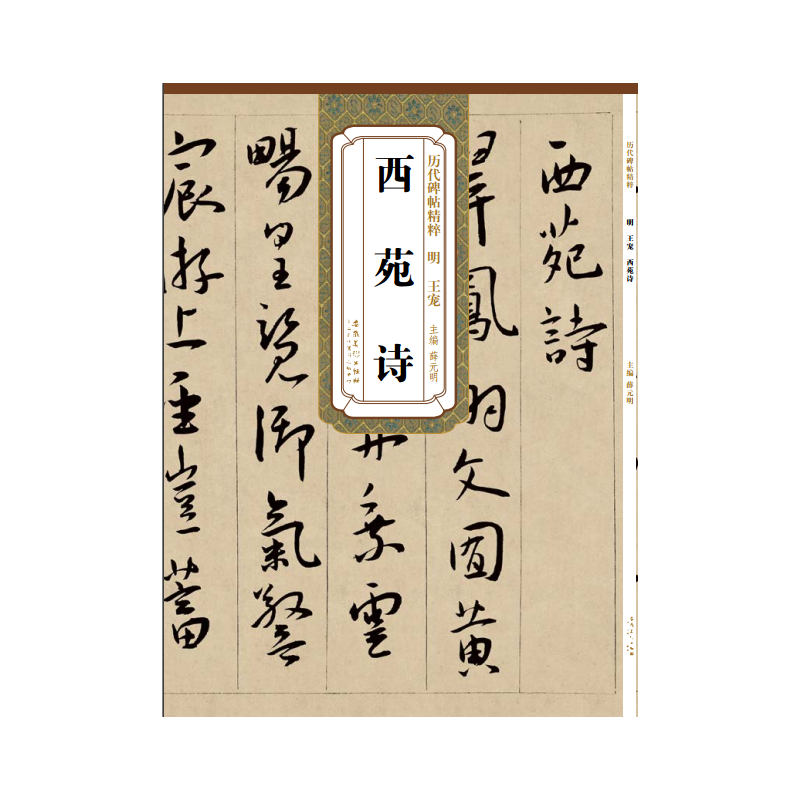 西苑诗
历代碑帖精粹 明 王宠
主编 薛元明
西苑詩
鳳 文囿黄
乘雲
皇覽御氣
宸游上 豈蓄
历代碑帖精粹 明 王宠 西苑诗 主编 薛元明